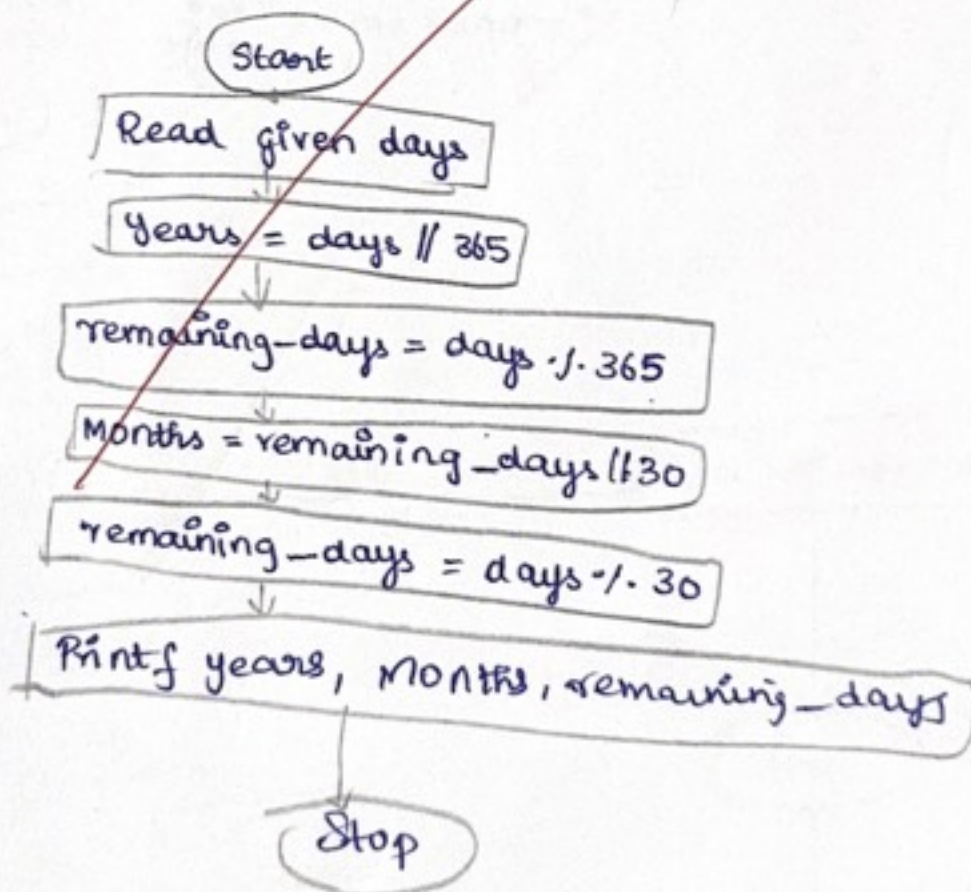 Start
Read given days
years = days // 365
remaining_days = days % 365
Months = remaining_days // 30
remaining_days = days % 30
Printf years, Months, remaining_days
Stop